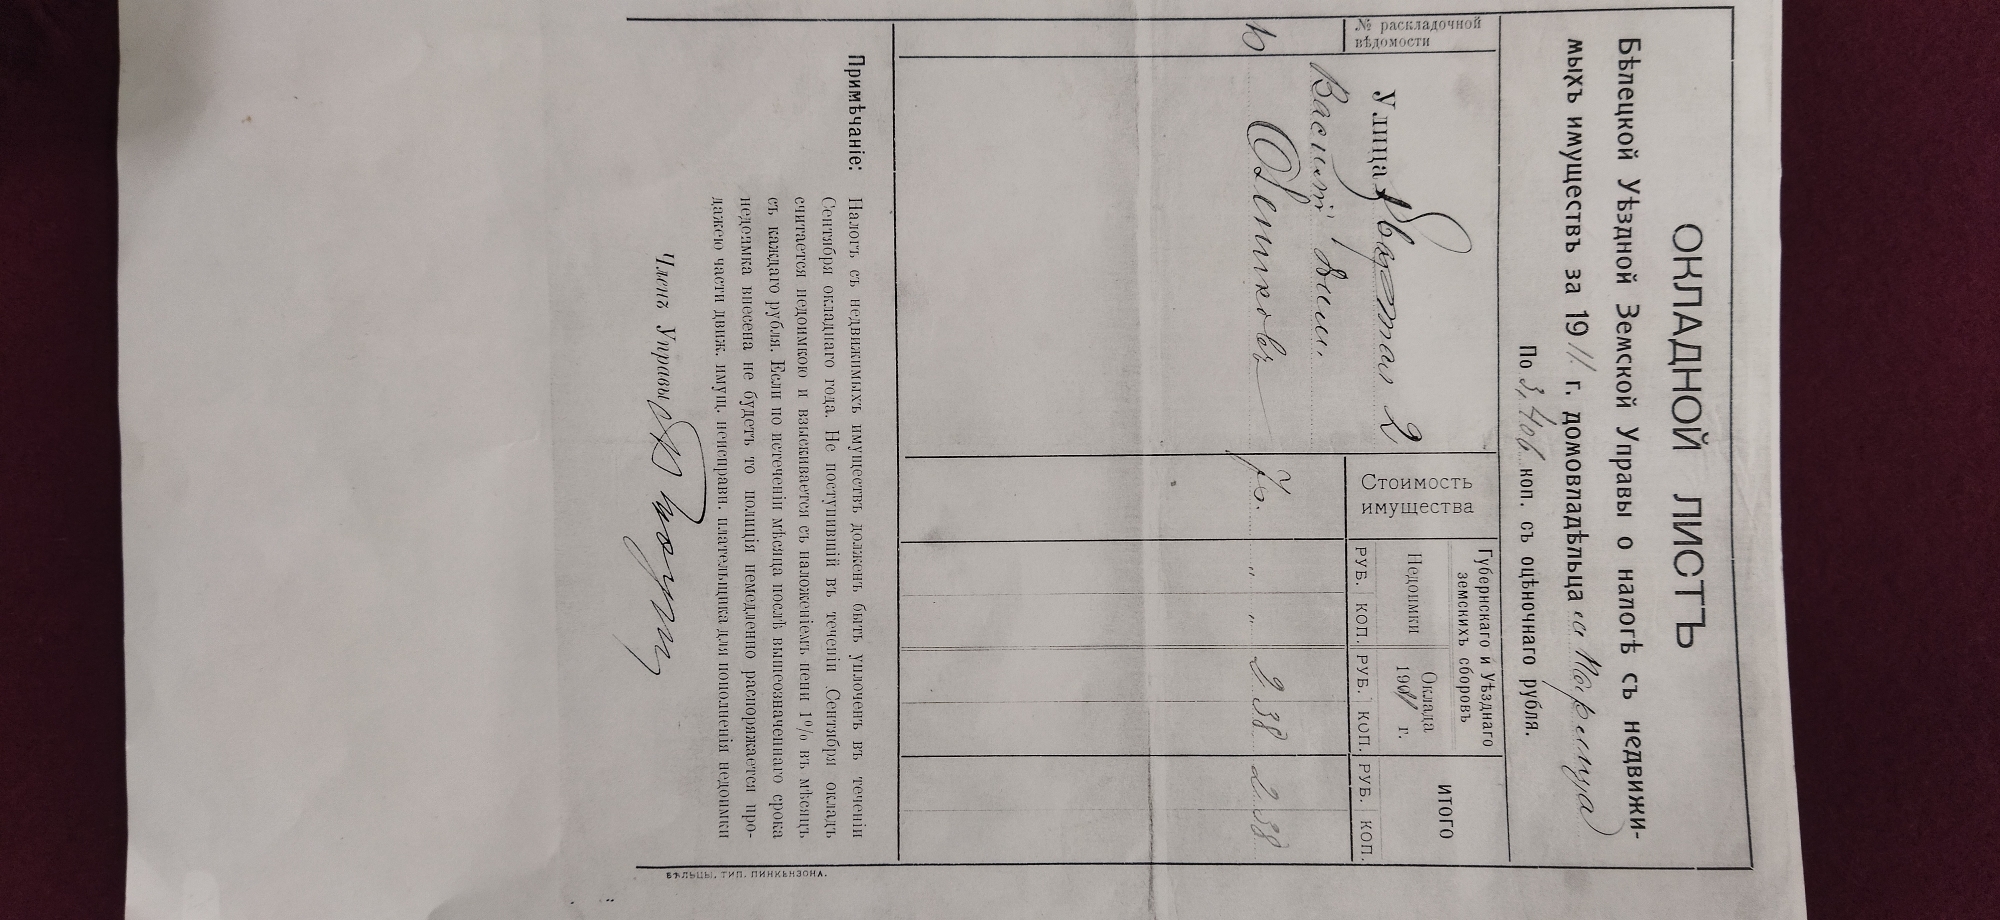 ОКЛАДНОЙ ЛИСТЪ
Бѣлецкой Уѣздной Земской Управы о налогѣ съ недвижи-
мыхъ имуществъ за 1911 г. домовладѣльца
По 3,406 коп. съ оцѣночнаго рубля.
№ раскладочной
вѣдомости
Улица 2
Стоимость
имущества
Губернскаго и Уѣзднаго
земскихъ сборовъ
Недоимки
Оклада
г.
ИТОГО
РУБ. КОП. РУБ. КОП. РУБ. КОП.
Василій
10 70. " " 2 38 2 38
Примѣчаніе: Налогъ съ недвижимыхъ имуществъ долженъ быть уплоченъ въ теченіи
Сентября окладнаго года. Не поступившій въ теченіи Сентября окладъ
считается недоимкою и взыскивается съ наложеніемъ пени 1% въ мѣсяцъ
съ каждаго рубля. Если по истеченіи мѣсяца послѣ вышеозначеннаго срока
недоимка внесена не будетъ то полиція немедленно распоряжается про-
дажею части движ. имущ. неисправн. плательщика для пополненія недоимки
Членъ Управы
БѢЛЬЦЫ, ТИП. ПИНКЕНЗОНА.